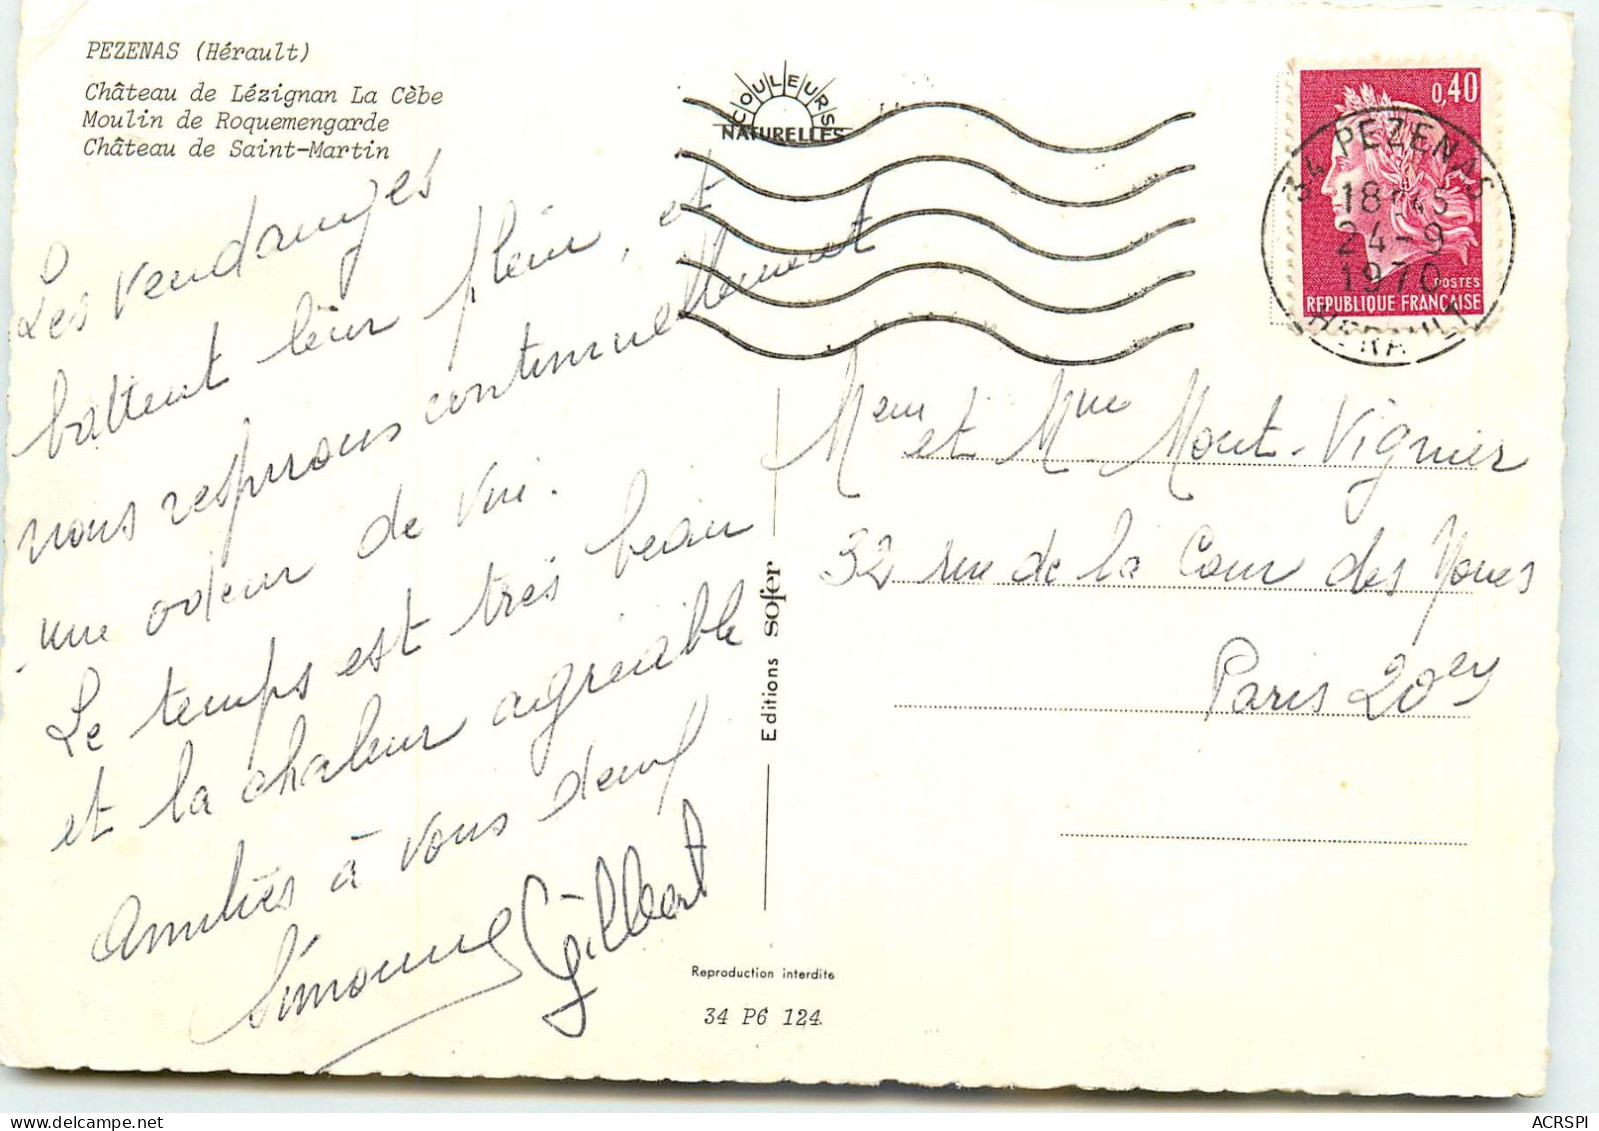 PEZENAS (Hérault)
Château de Lézignan La Cèbe
Moulin de Roquemengarde
Château de Saint-Martin
COULEURS
NATURELLES
0,40
POSTES
REPUBLIQUE FRANÇAISE
34 PEZENAS
18H45
24-9
1970
HERAULT
Les Vendanges
battent leur plein, et
nous respirons continuellement
une odeur de vin.
Le temps est très beau
et la chaleur agréable
Amitiés à vous deux
Simonne Gilbert
Editions sofer
Reproduction interdite
34 P6 124
et Mme Mont-Vignier
32 rue de la Cour des Noues
Paris 20
ACRSPI